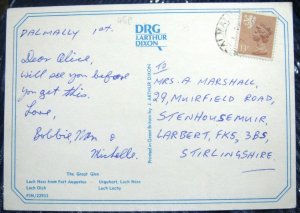 DALMALLY 1st.
Dear Alice,
Will see you before
you get this.
Love,
Bobbie Nan &
Michelle.
DRG
J. ARTHUR
DIXON
TO
MRS. A. MARSHALL,
29, MUIRFIELD ROAD,
STENHOUSEMUIR,
LARBERT, FK5, 3BS,
STIRLINGSHIRE.
Printed in Great Britain by J. ARTHUR DIXON
The Great Glen
Loch Ness from Fort Augustus Urquhart, Loch Ness
Loch Oich Loch Lochy